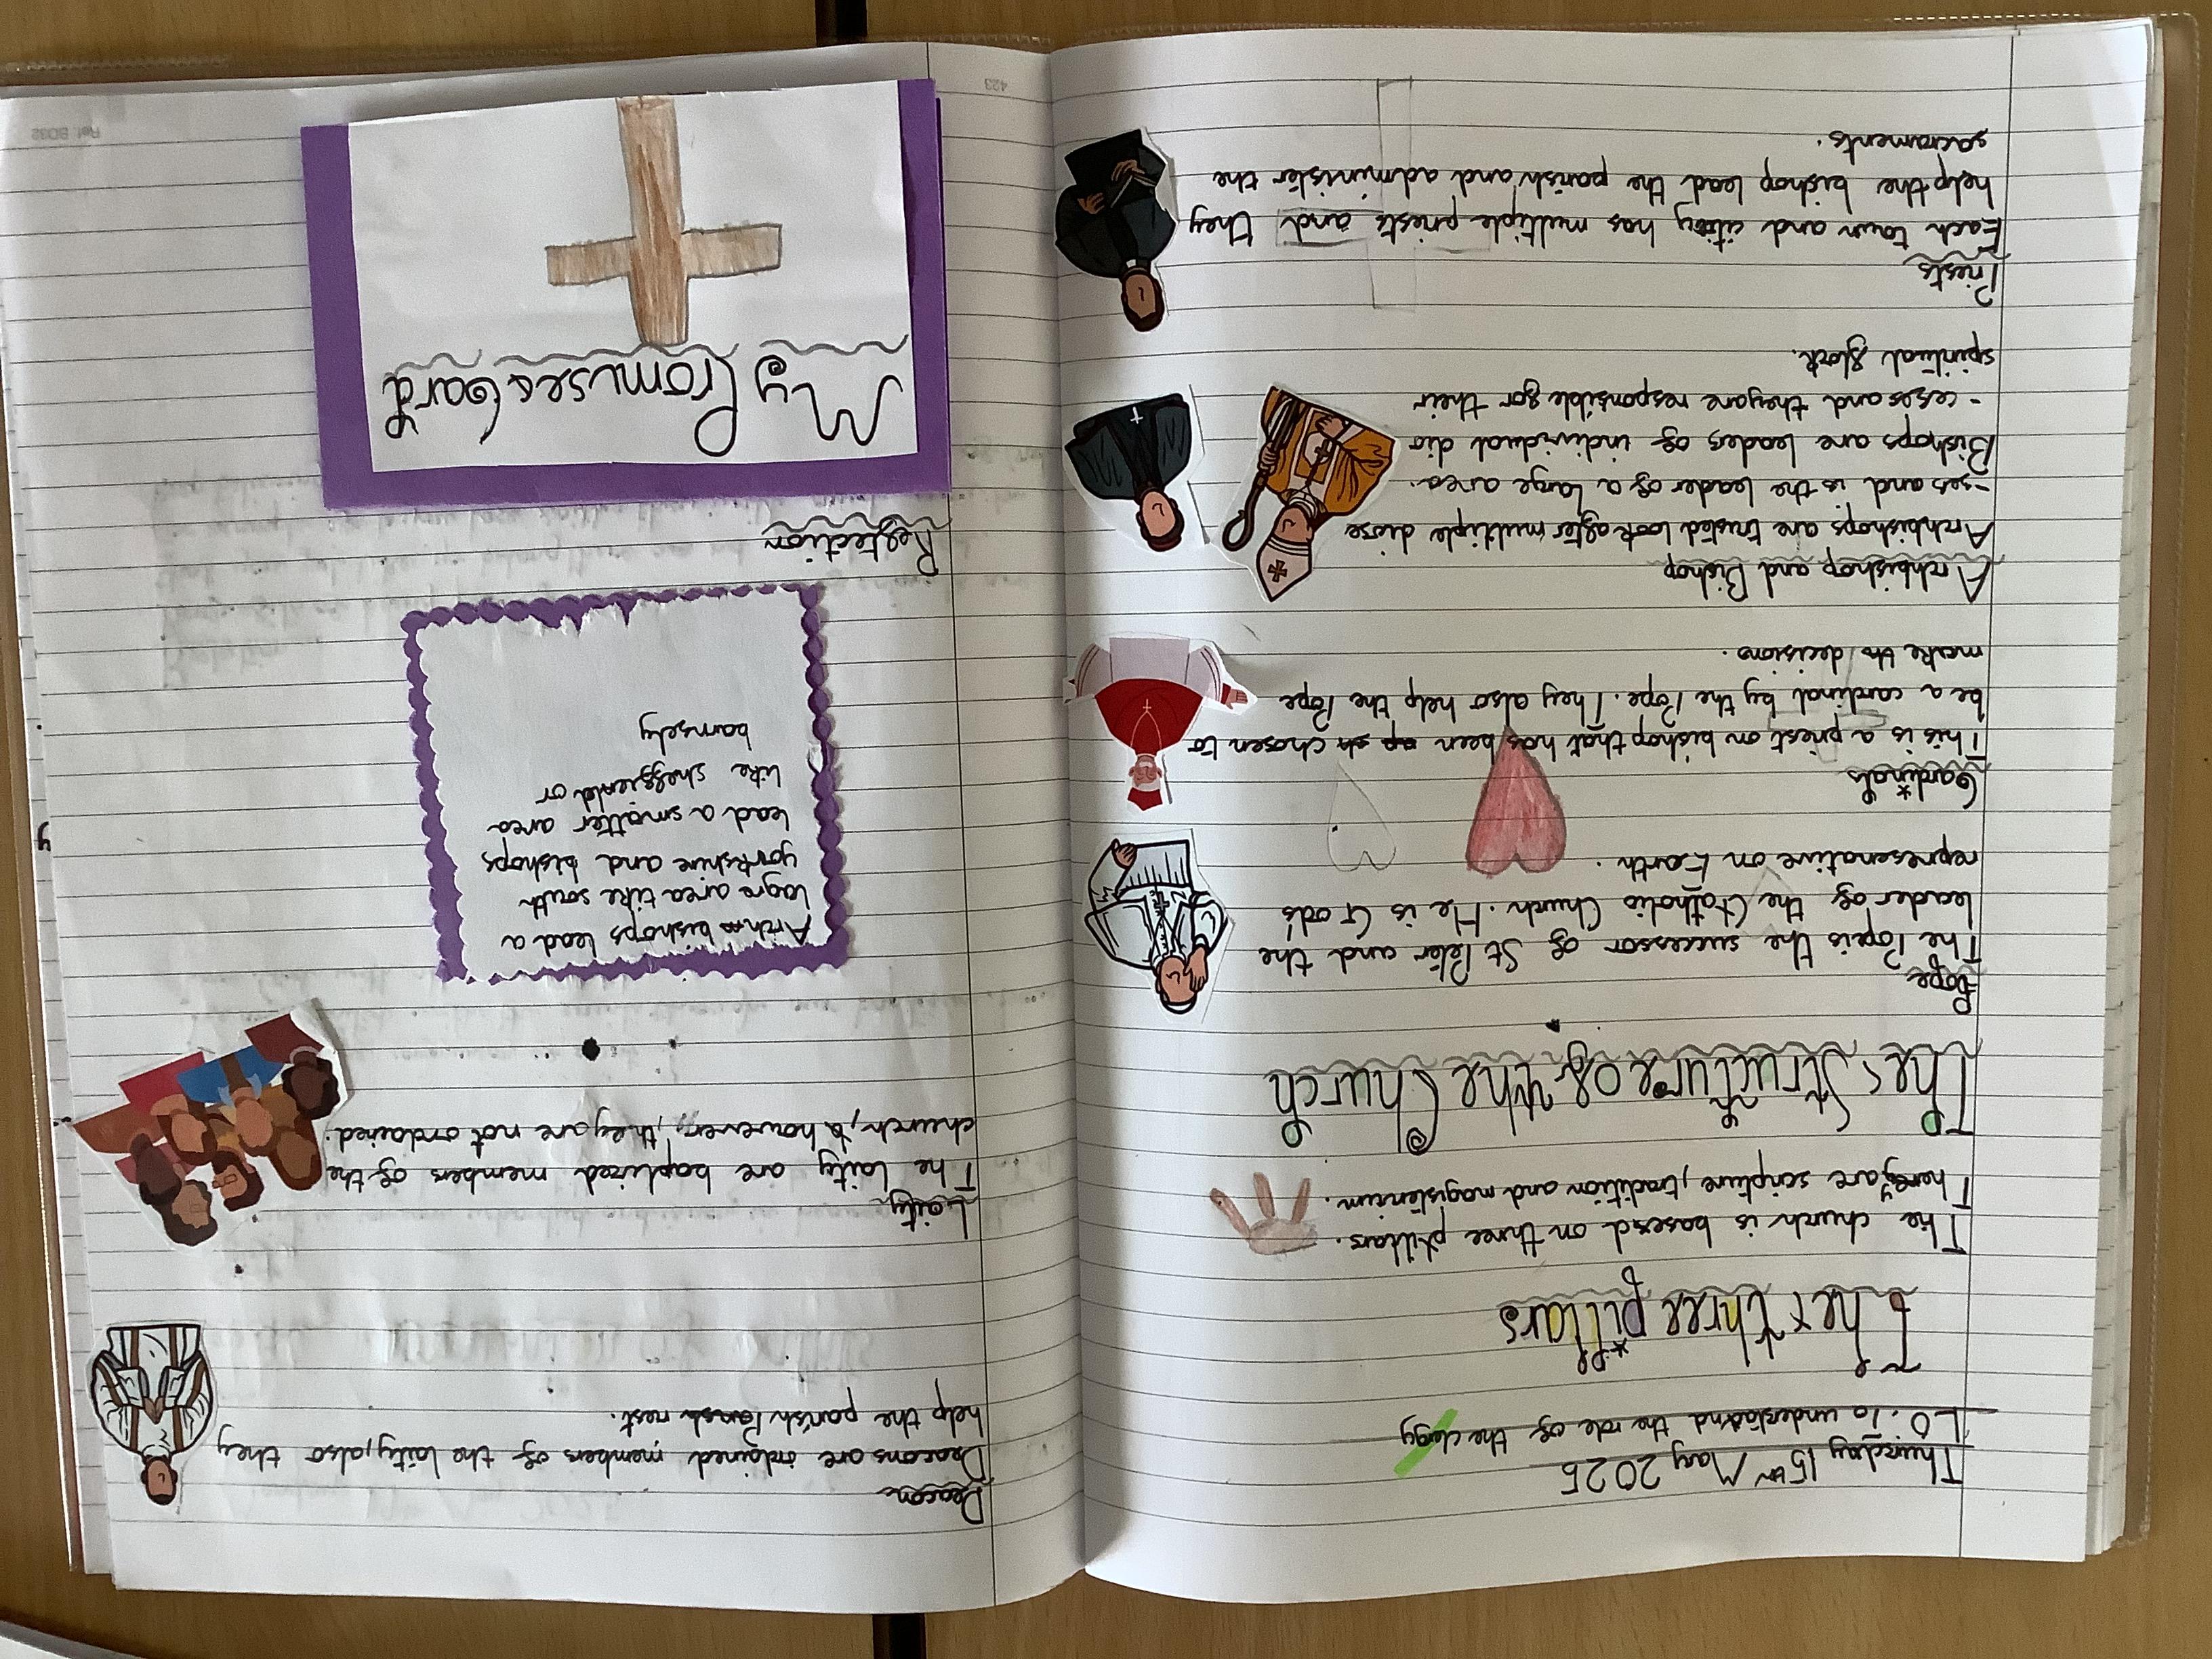 Thursday 15th May 2025
LO. To understand the role of the clergy
The three pillars
The church is based on three pillars.
They are scripture, tradition and magisterium.
The Structure of the Church
Pope
The Pope is the successor of St Peter and the
leader of the Catholic Church. He is God's
represenative on Earth.
Cardinals
This is a priest on bishop that has been chosen to
be a cardinal by the Pope. They also help the Pope
make th decisions.
Archbishop and Bishop
Archbishops are trusted look after multiple diose
-ses and is the leader of a large area.
Bishops are leaders of individual dio
-ceses and they are responsible for their
spiritual flock.
Priests
Each town and city has multiple priests and they
help the bishop lead the parish and administer the
sacraments.
Deacon
Deacons are ordained members of the laity, also they
help the parish Parish rest.
Laity
The laity are baptized members of the
church, however, they are not ordained.
Arch bishops lead a
lagre area like south
yorkshire and bishops
lead a smaller area
like sheffield or
barnsely
Reflection
My Promises Card
423
Ref BD32